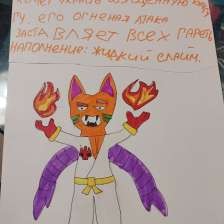 ХОЧЕТ
ГУ. ЕГО ОГНЕНАЯ АТАКА
ЗАСТАВЛЯЕТ ВСЕХ ГАРЕТЬ
НАПОЛНЕНИЕ: ЖИДКИЙ СЛАЙМ.